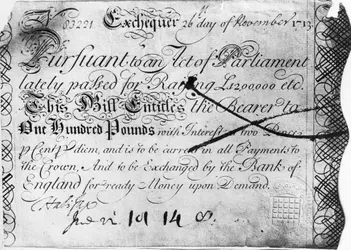 33221 Exchequer 26th day of November 1713
Pursuant to an Act of Parliament
lately passed for Raising £1200000 etc.
This Bill Entitles the Bearer to
One Hundred Pounds with Interest at two Pence
p Cent p diem, and is to be current in all Payments to
the Crown, And to be Exchanged by the Bank of
England for ready Money upon Demand.
19 14 8